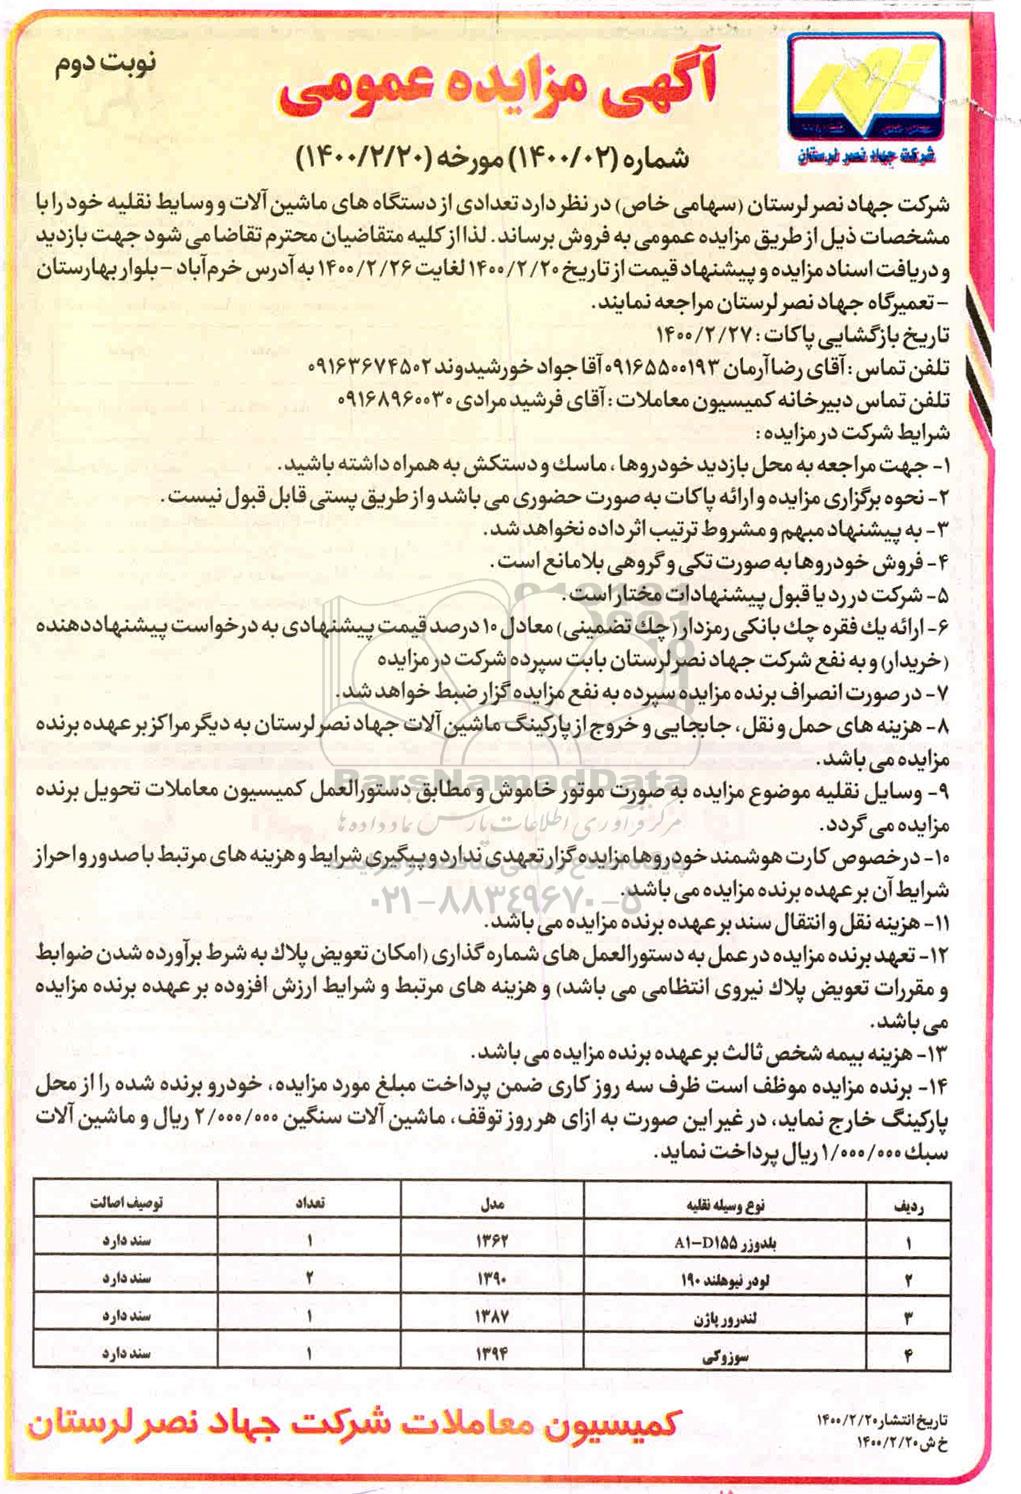 نوبت دوم
آگهی مزایده عمومی
شرکت جهاد نصر لرستان
شماره (۱۴۰۰/۰۲) مورخه (۱۴۰۰/۲/۲۰)
شرکت جهاد نصر لرستان (سهامی خاص) در نظر دارد تعدادی از دستگاه های ماشین آلات و وسایط نقلیه خود را با
مشخصات ذیل از طریق مزایده عمومی به فروش برساند. لذا از کلیه متقاضیان محترم تقاضا می شود جهت بازدید
و دریافت اسناد مزایده و پیشنهاد قیمت از تاریخ ۱۴۰۰/۲/۲۰ لغایت ۱۴۰۰/۲/۲۶ به آدرس خرم‌آباد - بلوار بهارستان
- تعمیرگاه جهاد نصر لرستان مراجعه نمایند.
تاریخ بازگشایی پاکات : ۱۴۰۰/۲/۲۷
تلفن تماس : آقای رضا آرمان ۰۹۱۶۵۵۰۰۱۹۳ آقا جواد خورشیدوند ۰۹۱۶۳۶۷۴۵۰۲
تلفن تماس دبیرخانه کمیسیون معاملات : آقای فرشید مرادی ۰۹۱۶۸۹۶۰۰۳۰
شرایط شرکت در مزایده :
۱- جهت مراجعه به محل بازدید خودروها ، ماسك و دستکش به همراه داشته باشید.
۲- نحوه برگزاری مزایده و ارائه پاکات به صورت حضوری می باشد و از طریق پستی قابل قبول نیست.
۳- به پیشنهاد مبهم و مشروط ترتیب اثر داده نخواهد شد.
۴- فروش خودروها به صورت تکی و گروهی بلامانع است.
۵- شرکت در رد یا قبول پیشنهادات مختار است.
۶- ارائه یك فقره چك بانکی رمزدار (چك تضمینی) معادل ۱۰ درصد قیمت پیشنهادی به درخواست پیشنهاد دهنده
(خریدار) و به نفع شرکت جهاد نصر لرستان بابت سپرده شرکت در مزایده
۷- در صورت انصراف برنده مزایده سپرده به نفع مزایده گزار ضبط خواهد شد.
۸- هزینه های حمل و نقل، جابجایی و خروج از پارکینگ ماشین آلات جهاد نصر لرستان به دیگر مراکز بر عهده برنده
مزایده می باشد.
ParsNamadData
۹- وسایل نقلیه موضوع مزایده به صورت موتور خاموش و مطابق دستورالعمل کمیسیون معاملات تحویل برنده
مزایده می گردد.
مرکز فرآوری اطلاعات پارس نماد داده ها
۱۰- در خصوص کارت هوشمند خودروها مزایده گزار تعهدی ندارد و پیگیری شرایط و هزینه های مرتبط با صدور و احراز
شرایط آن بر عهده برنده مزایده می باشد.
۰۲۱-۸۸۳۴۹۶۷۰-۵
۱۱- هزینه نقل و انتقال سند بر عهده برنده مزایده می باشد.
۱۲- تعهد برنده مزایده در عمل به دستورالعمل های شماره گذاری (امکان تعویض پلاك به شرط برآورده شدن ضوابط
و مقررات تعویض پلاك نیروی انتظامی می باشد) و هزینه های مرتبط و شرایط ارزش افزوده بر عهده برنده مزایده
می باشد.
۱۳- هزینه بیمه شخص ثالث بر عهده برنده مزایده می باشد.
۱۴- برنده مزایده موظف است ظرف سه روز کاری ضمن پرداخت مبلغ مورد مزایده، خودرو برنده شده را از محل
پارکینگ خارج نماید، در غیر این صورت به ازای هر روز توقف، ماشین آلات سنگین ۲/۰۰۰/۰۰۰ ریال و ماشین آلات
سبك ۱/۰۰۰/۰۰۰ ریال پرداخت نماید.
ردیف نوع وسیله نقلیه مدل تعداد توصیف اصالت
۱ بلدوزر A۱-D۱۵۵ ۱۳۶۲ ۱ سند دارد
۲ لودر نیوهلند ۱۹۰ ۱۳۹۰ ۲ سند دارد
۳ لندرور پاژن ۱۳۸۷ ۱ سند دارد
۴ سوزوکی ۱۳۹۴ ۱ سند دارد
تاریخ انتشار ۱۴۰۰/۲/۲۰
خ ش ۱۴۰۰/۲/۲۰
کمیسیون معاملات شرکت جهاد نصر لرستان